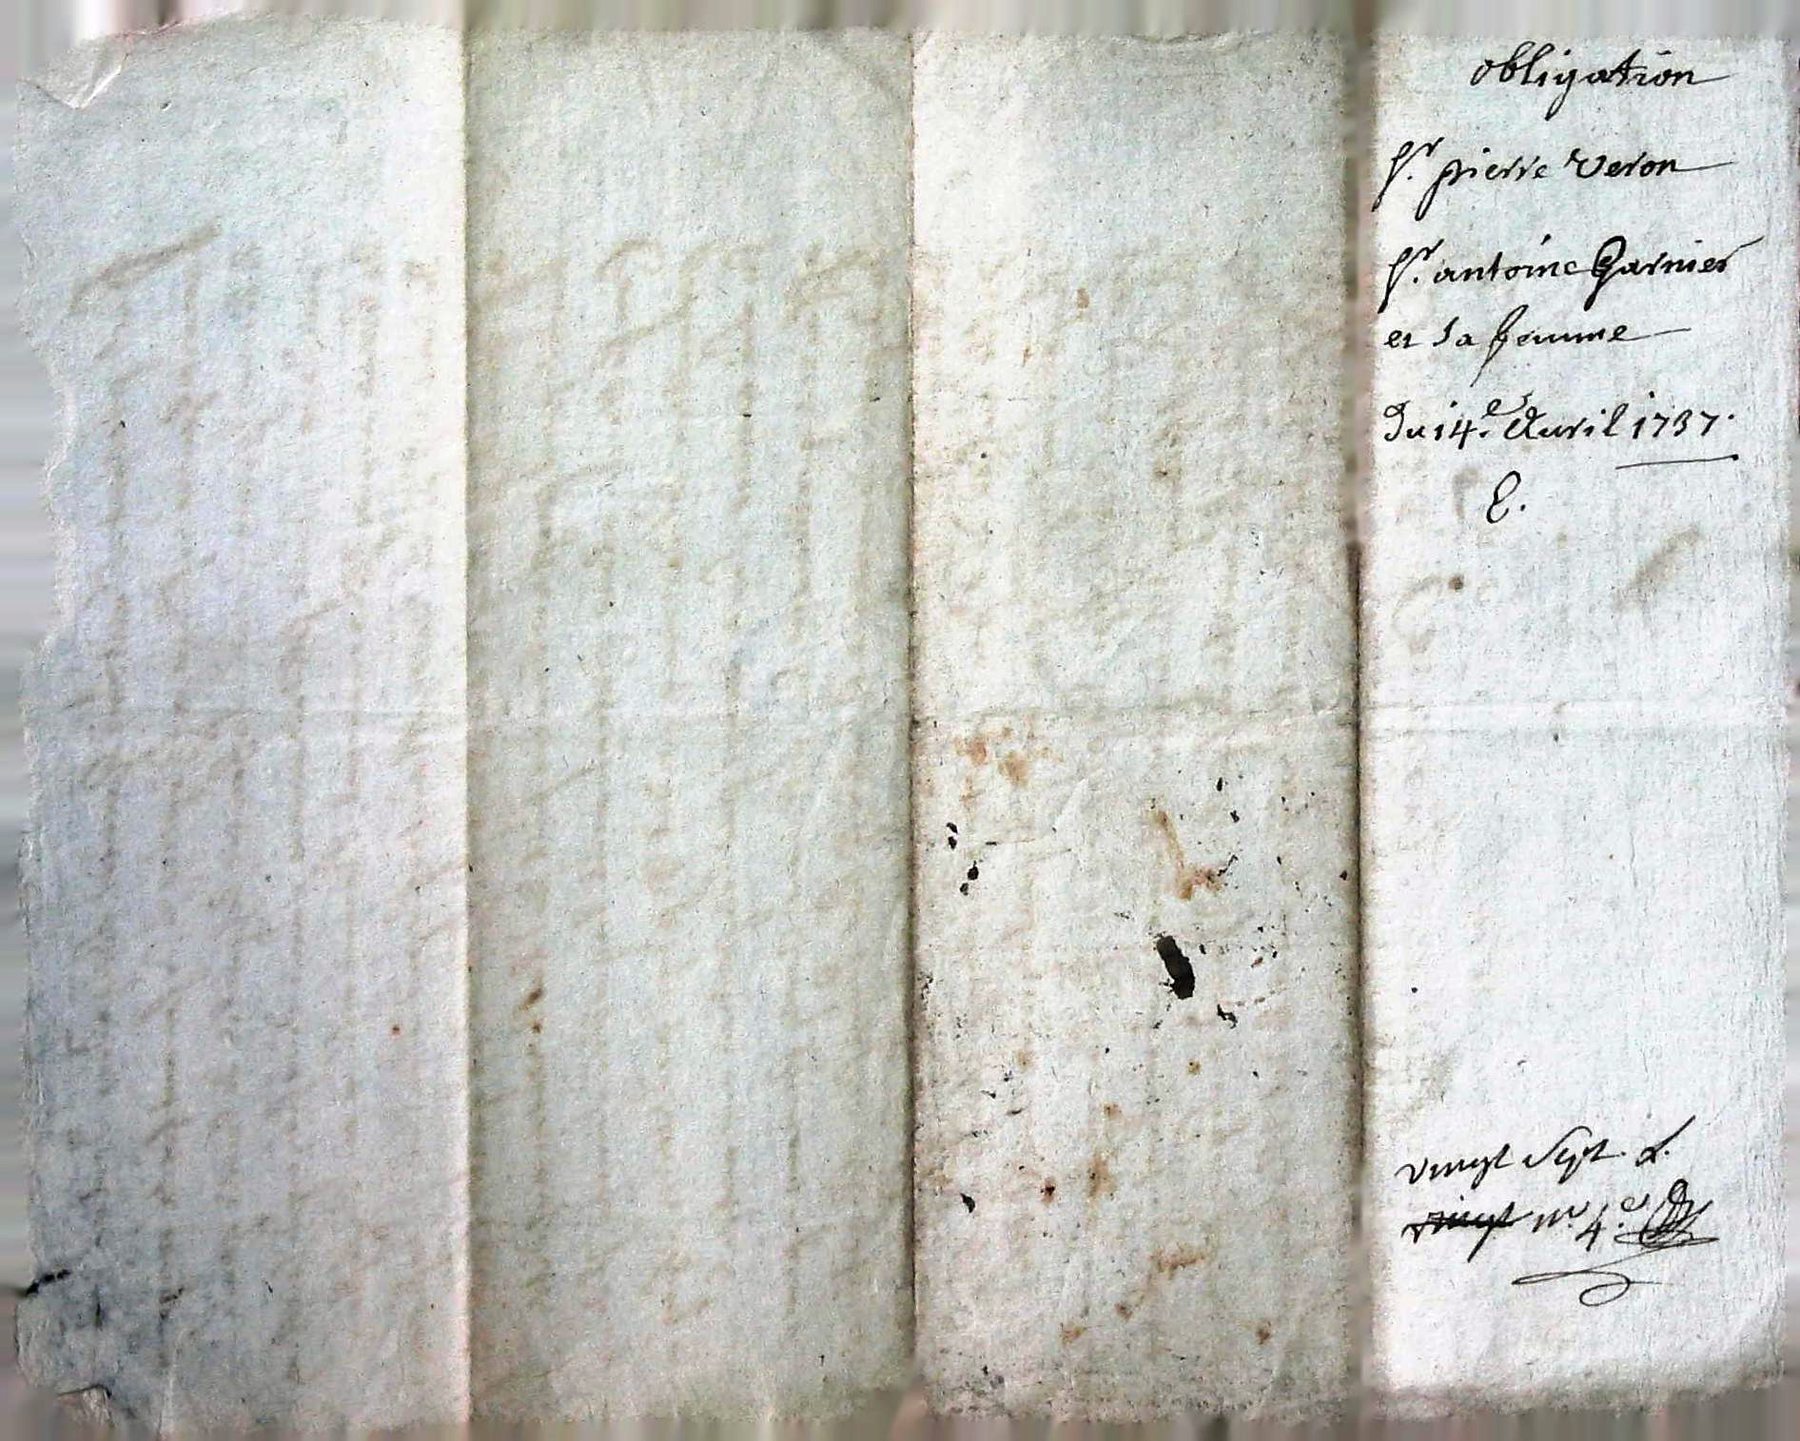 obligation
Sr. pierre veron
Sr. antoine Garnier
et sa femme
Du 14.e Avril 1737.
E.
vingt sept. L.
vingt nv. 4.e